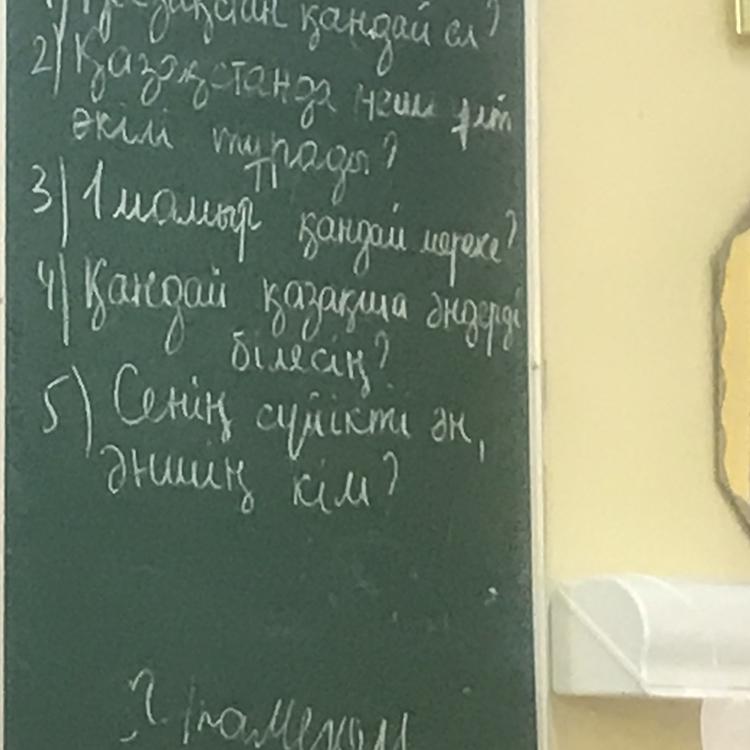 1) Қазақстан қандай ел?
2) Қазақстанда неше ұлт
өкілі тұрады?
3) 1 мамыр қандай мереке?
4) Қандай қазақша әндерді
білесің?
5) Сенің сүйікті ән,
әншің кім?